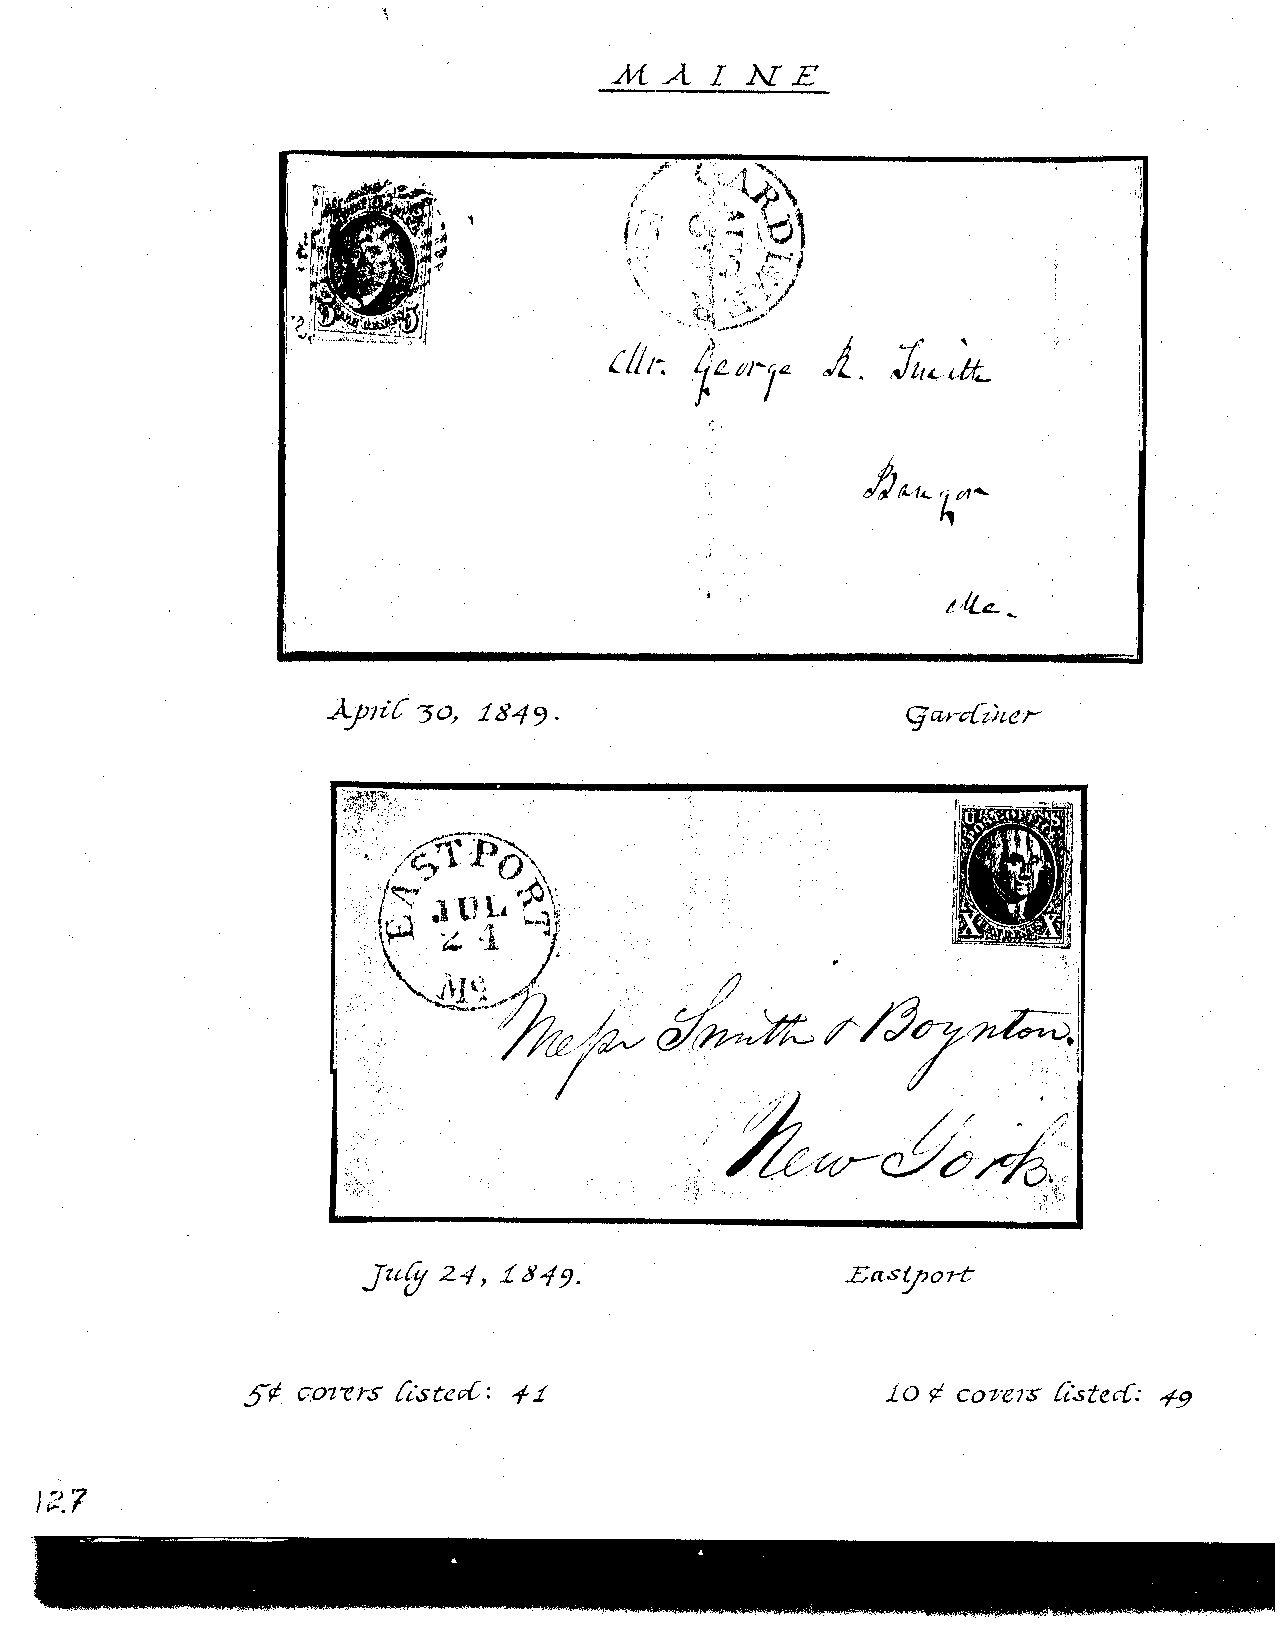 MAINE
GARDINER
Mr. George R. Smith
Bangor
Me.
April 30, 1849. Gardiner
EASTPORT
JUL
24
Me
X X
Messr Smith & Boynton.
New York.
July 24, 1849. Eastport
5¢ covers listed: 41 10¢ covers listed: 49
127